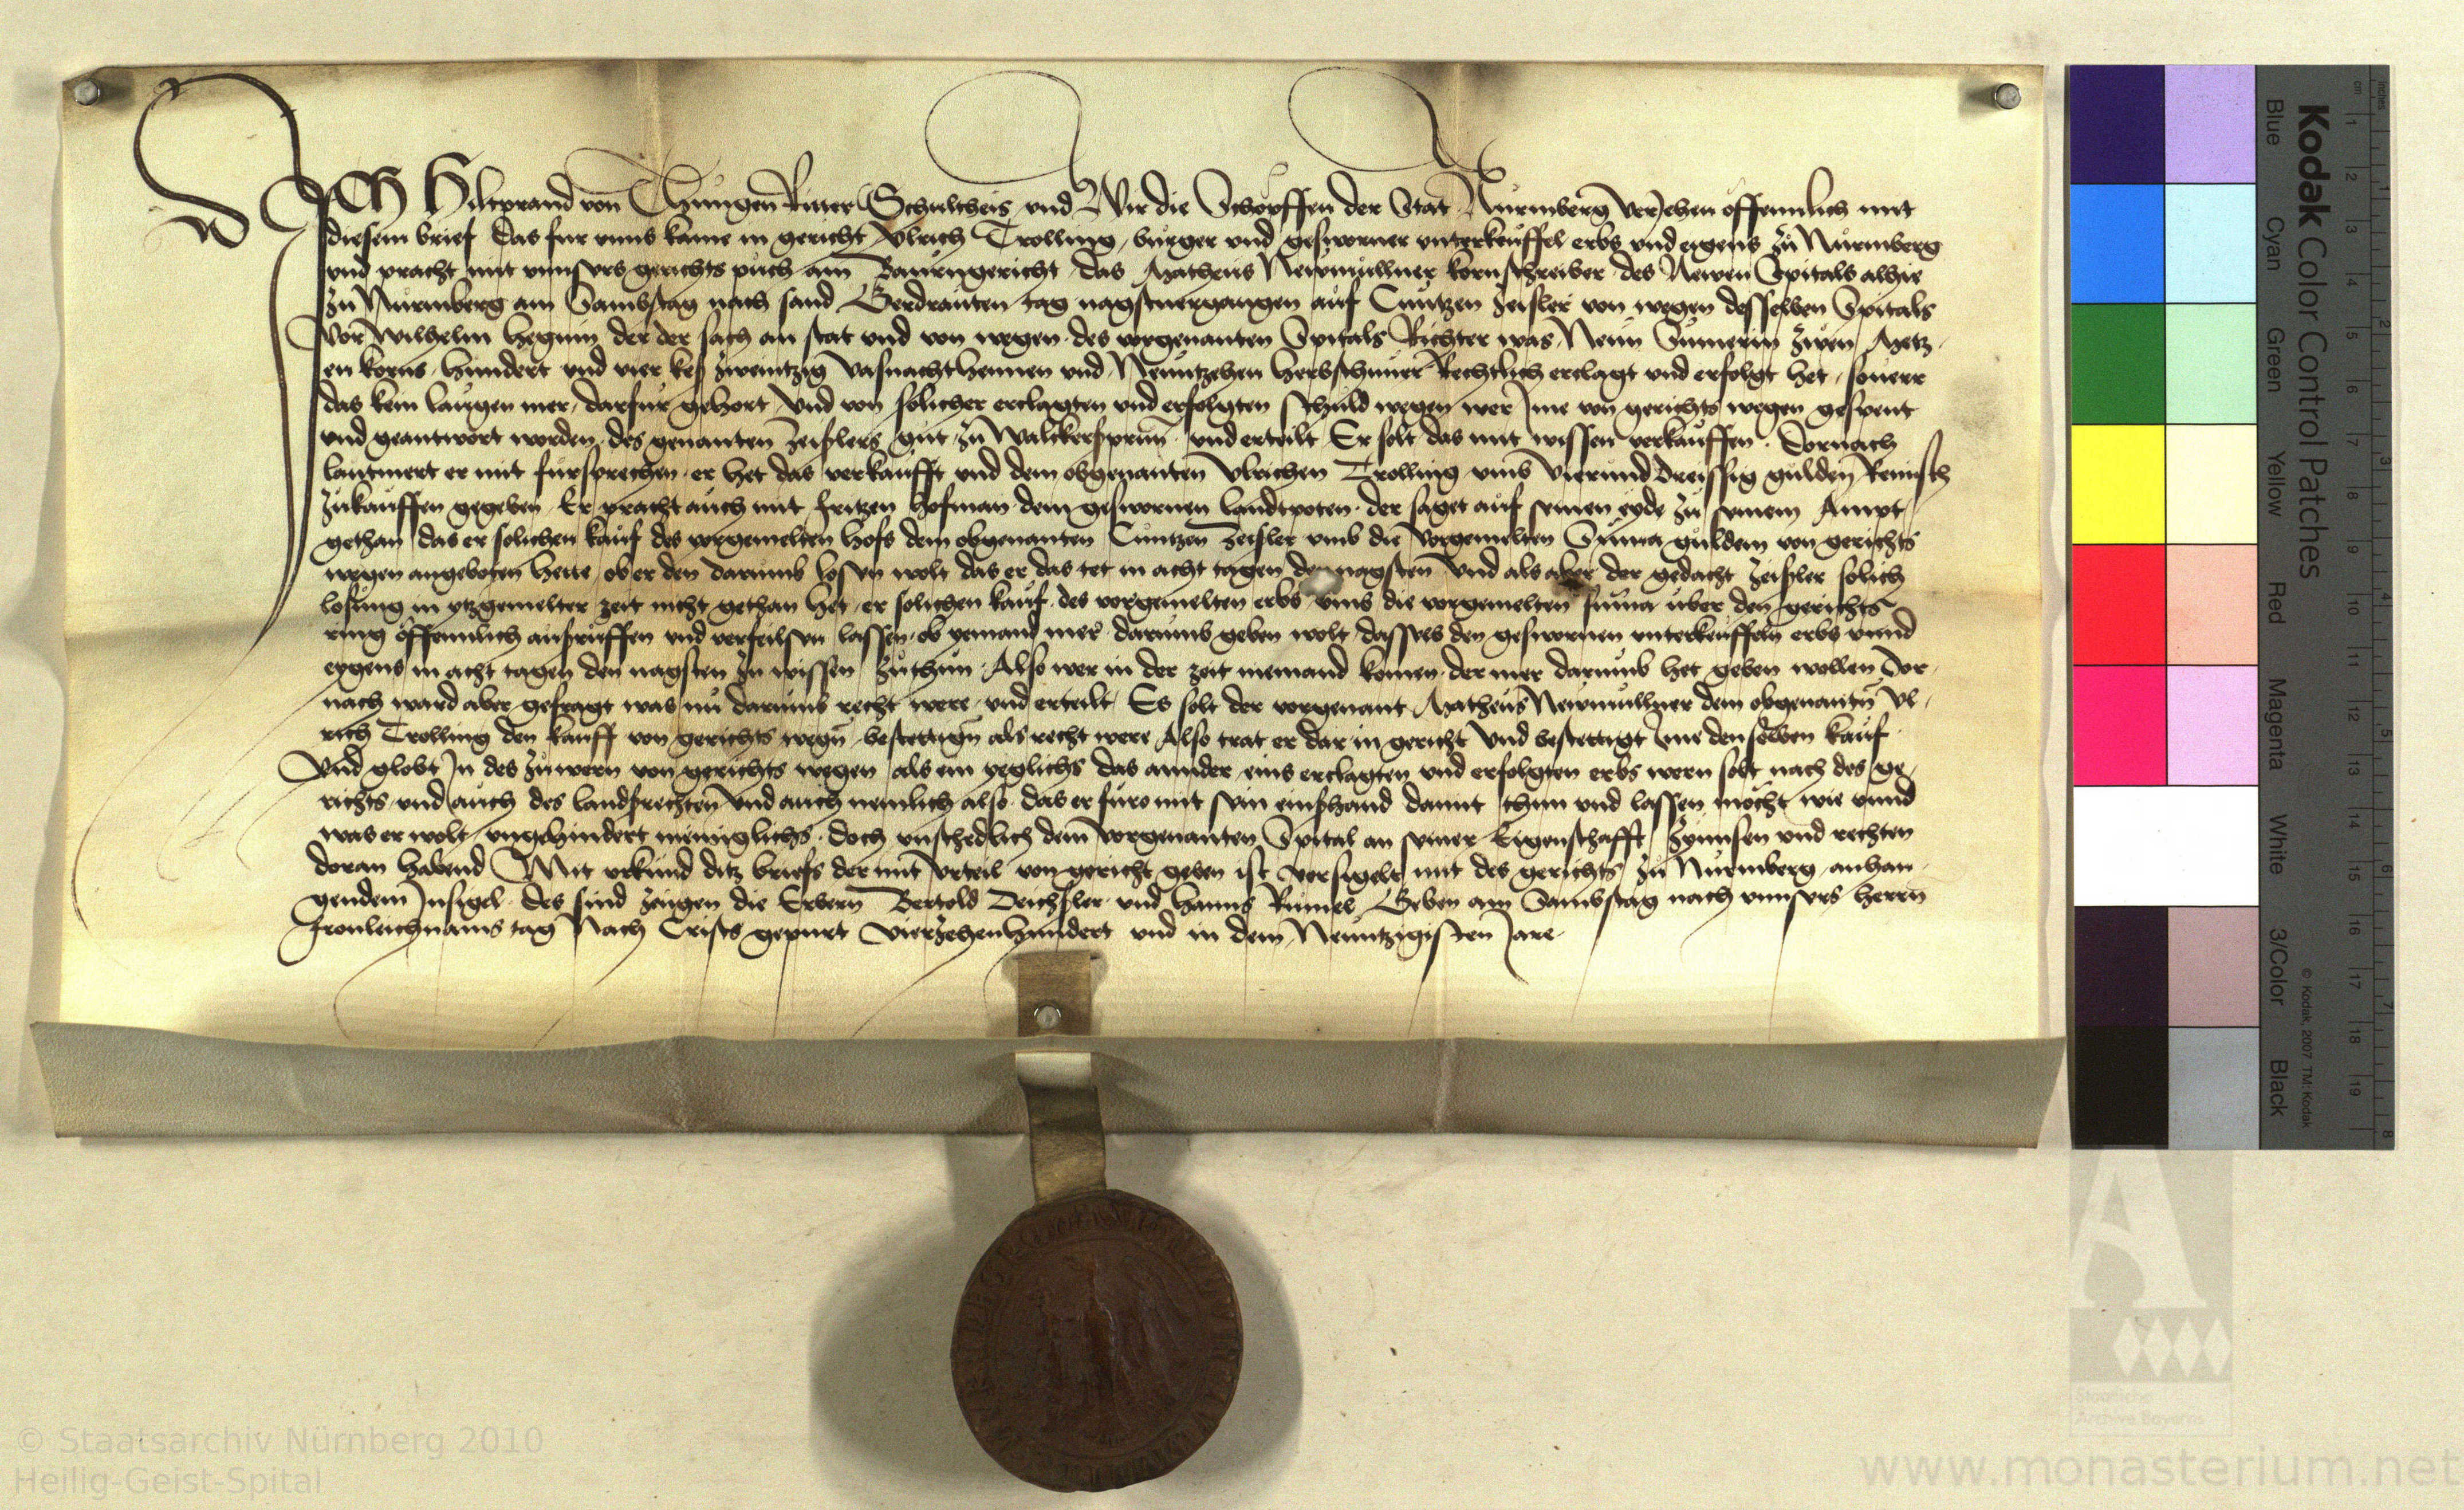 ICH Hiltprand von Thungen Ritter Schultheis und Wir die Schopffen der Stat Nurmberg veriehen offennlich mit
diesem brief das fur unns kame in gericht Ulrich Trolling burger und gesworner unterkeuffel erbs und eigens zu Nurmberg
und pracht mit unnsers gerichts puch am Baurngericht das Matheus Newmullner kornschreiber des Newen Spitals alhie
zu Nurmberg am Sambstag nach sand Gerdrauten tag nagstvergangen auf Cuntzen Zeisler von wegen desselben Spitals
vor Wilhelm der der sach an stat und von wegen des vorgenanten Spitals Richter was Neun Sumerin zwen Metz
en korns hundert und vier kes zweintzig vasnachthennen und Neuntzehen herbsthuner Rechtlich erclagt und erfolgt het souerr
das kein laugen mer darfur gehort und von solicher erclagten und erfolgten schuld wegen wer Ime von gerichts wegen
und geantwort worden des genanten Zeißlers gut zu Walckersprun und erteilt Er solt das mit wissen verkauffen Dornach
lautmert er mit fursprechen er het das verkaufft und dem obgenanten Ulrichen Trolling umb vierund dreissig gulden Reinisch
zukauffen gegeben Er pracht auch mit Fritzen Hofman dem gesworen landtpoten der saget auf seinen eyde zu seinem Ampt
gethan das er solichen kauf des vorgemelten hofs dem obgenanten Cuntzen Zeisler umb die vorgemelten Suma guldein von gerichts
wegen angeboten hette ob er den darumb losen wolt das er das tet in acht tagen den nagsten und als aber der gedacht Zeißler solich
losung in ytzgemelter zeit nicht gethan het er solichen kauf des vorgemelten erbs umb die vorgemelten suma uber den gerichts
ring offennlich außruffen und verfeilsen lassen ob yemand mer darumb geben wolt das den geswornen unterkeuffeln erbs unnd
eygens in acht tagen den nagsten zu wissen zuthun Also wer in der zeit niemand komen der mer darumb het geben wollen Dor
nach ward aber gefragt was nu darumb recht were und erteilt Es solt der vorgenant Matheus Newmullner dem obgenantn Ul
rich Trolling den kauff von gerichts wegn bestettign als recht were Also trat er dar in gericht und bestettigt Ime denselben kauf
und globt In des zuwern von gerichts wegen als ein yeglichs das annder eins erclagten und erfolgten erbs wern solt nach des ge
richts und auch des landßrechten und auch nemlich also das er furo mit sein einßhand damit thun und lassen mocht wie unnd
was er wolt ungehindert meniglichs doch unschedlich dem vorgenanten Spital an seiner Eigenschafft zynnsen und rechten
doran habend Mit urkund ditz briefs der mit urteil von gericht geben ist versigelt mit des gerichts zu Nurmberg anhan
gendem Insigel des sind zeugen die Erbern Bertold Deichsler und Hanns Rumel Geben am Sambstag nach unnsers herrn
Fronleichnams tag Nach Crists gepurt vierzehenhundert und in dem Neuntzigisten Jare
Kodak Color Control Patches
Blue Cyan Green Yellow Red Magenta White 3/Color Black
© Kodak 2007 TM: Kodak
© Staatsarchiv Nürnberg 2010
Heilig-Geist-Spital
Staatliche
Archive Bayerns
www.monasterium.net